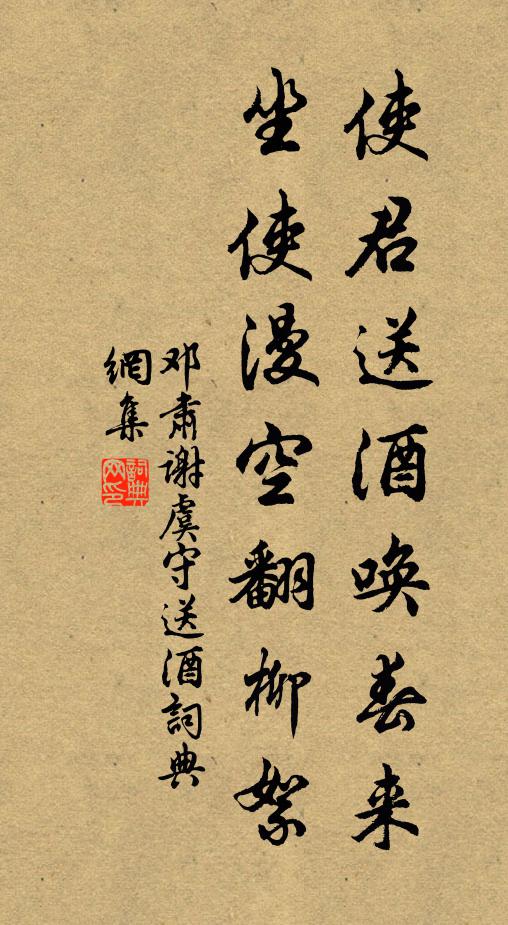 使君送酒唤春来
坐使漫空翻柳絮
邓肃谢虞守送酒詞典
網集
詞典网印